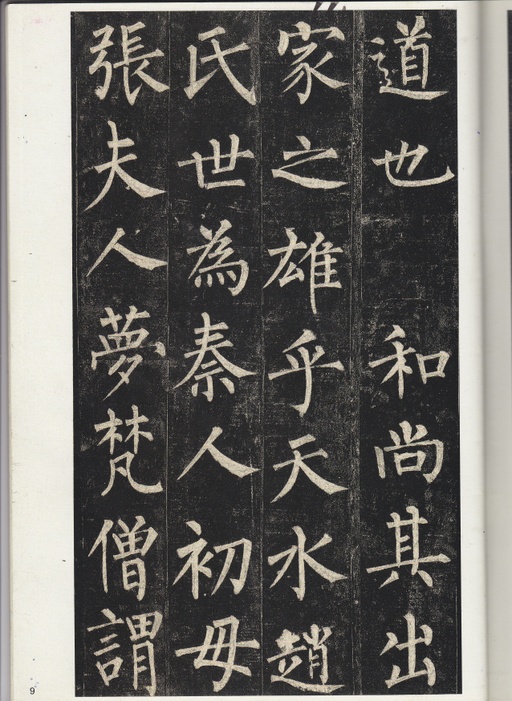 道也　和尚其出
家之雄乎天水趙
氏世為秦人初母
張夫人夢梵僧謂
9